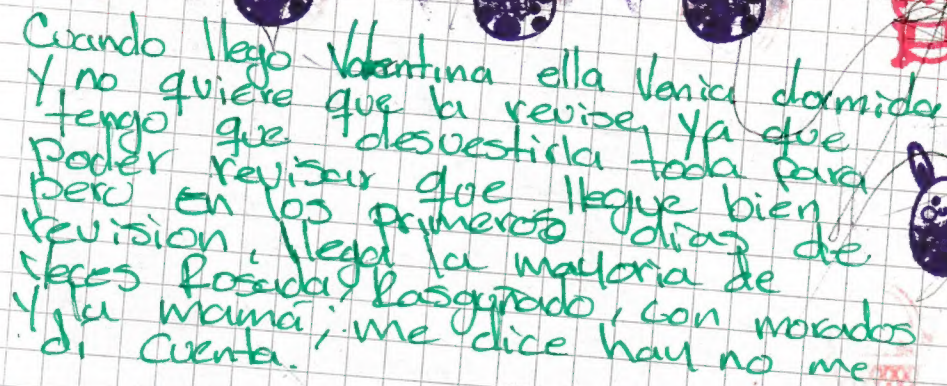 Cuando llego Valentina ella Venia dormida
Y no quiere que la revise, ya que
tengo que desvestirla toda para
Poder revisar que llegue bien
pero en los primeros dias de
revision, llega la mayoria de
veces Rosada, Rasguñado, con morados
Y la mamá; me dice hay no me
di cuenta.